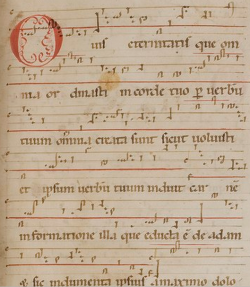 O uis eternitatis que om
nia or dinasti in corde tuo p uerbū
tuum omnia creata sunt sicut uoluisti
et ipsum uerbū tuum induit car nē
in formatione illa que educta ē de adam
& sic indumenta ipsius a maximo dolo